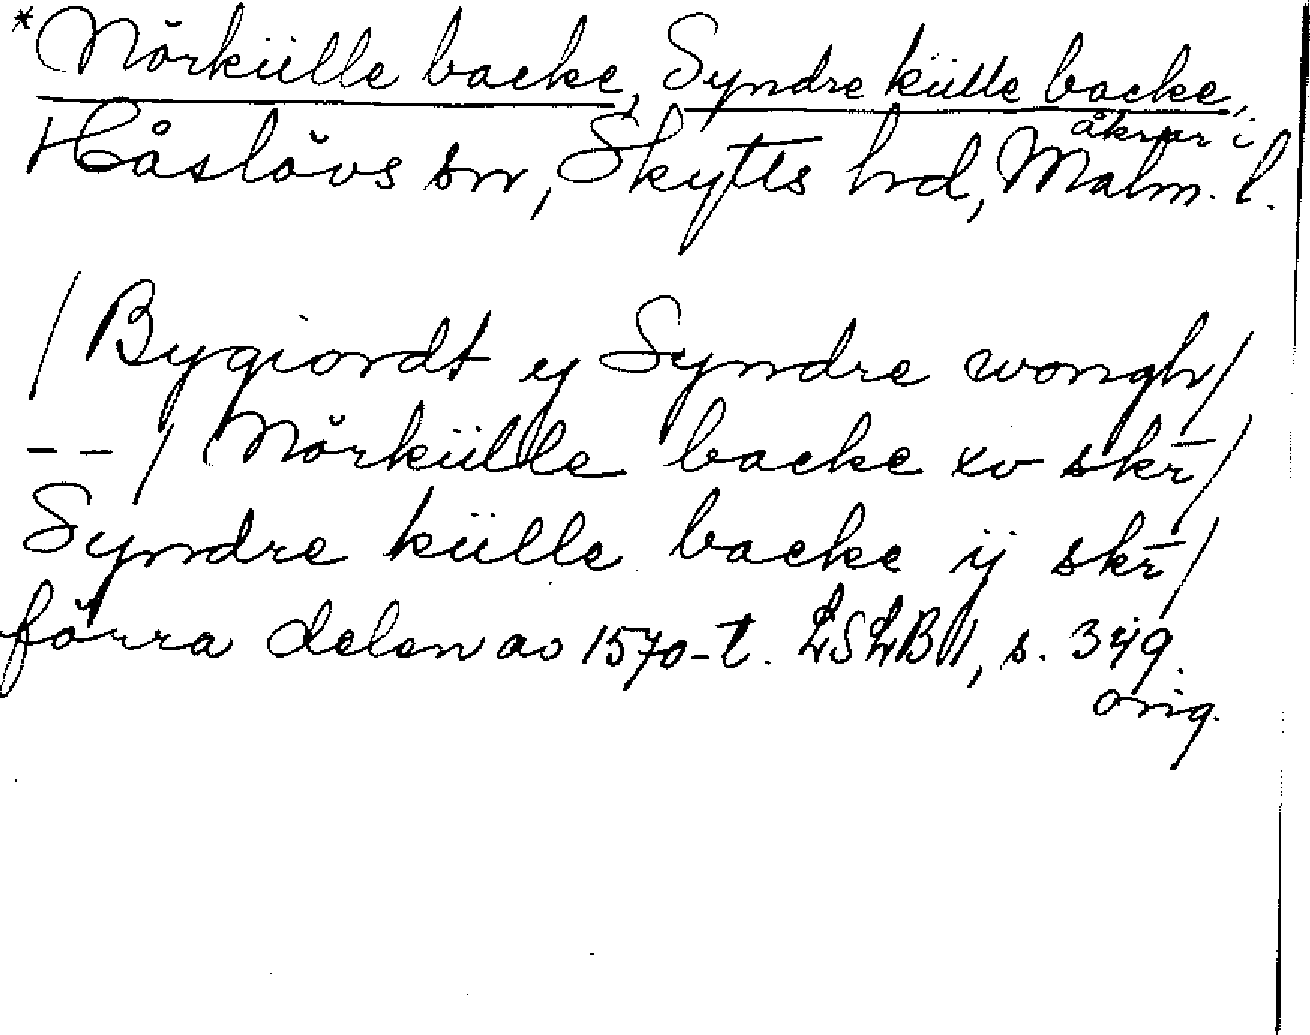 *Nörkülle backe, Syndre külle backe,
åkrar i
Håslövs sn, Skytts hd, Malm. l.
/ Bygiordt y Syndre wongh /
-- / Nörkülle backe xv skr̄ /
Syndre külle backe ij skr̄ /
förra delen av 1570-t. LSLB II, s. 349.
orig.